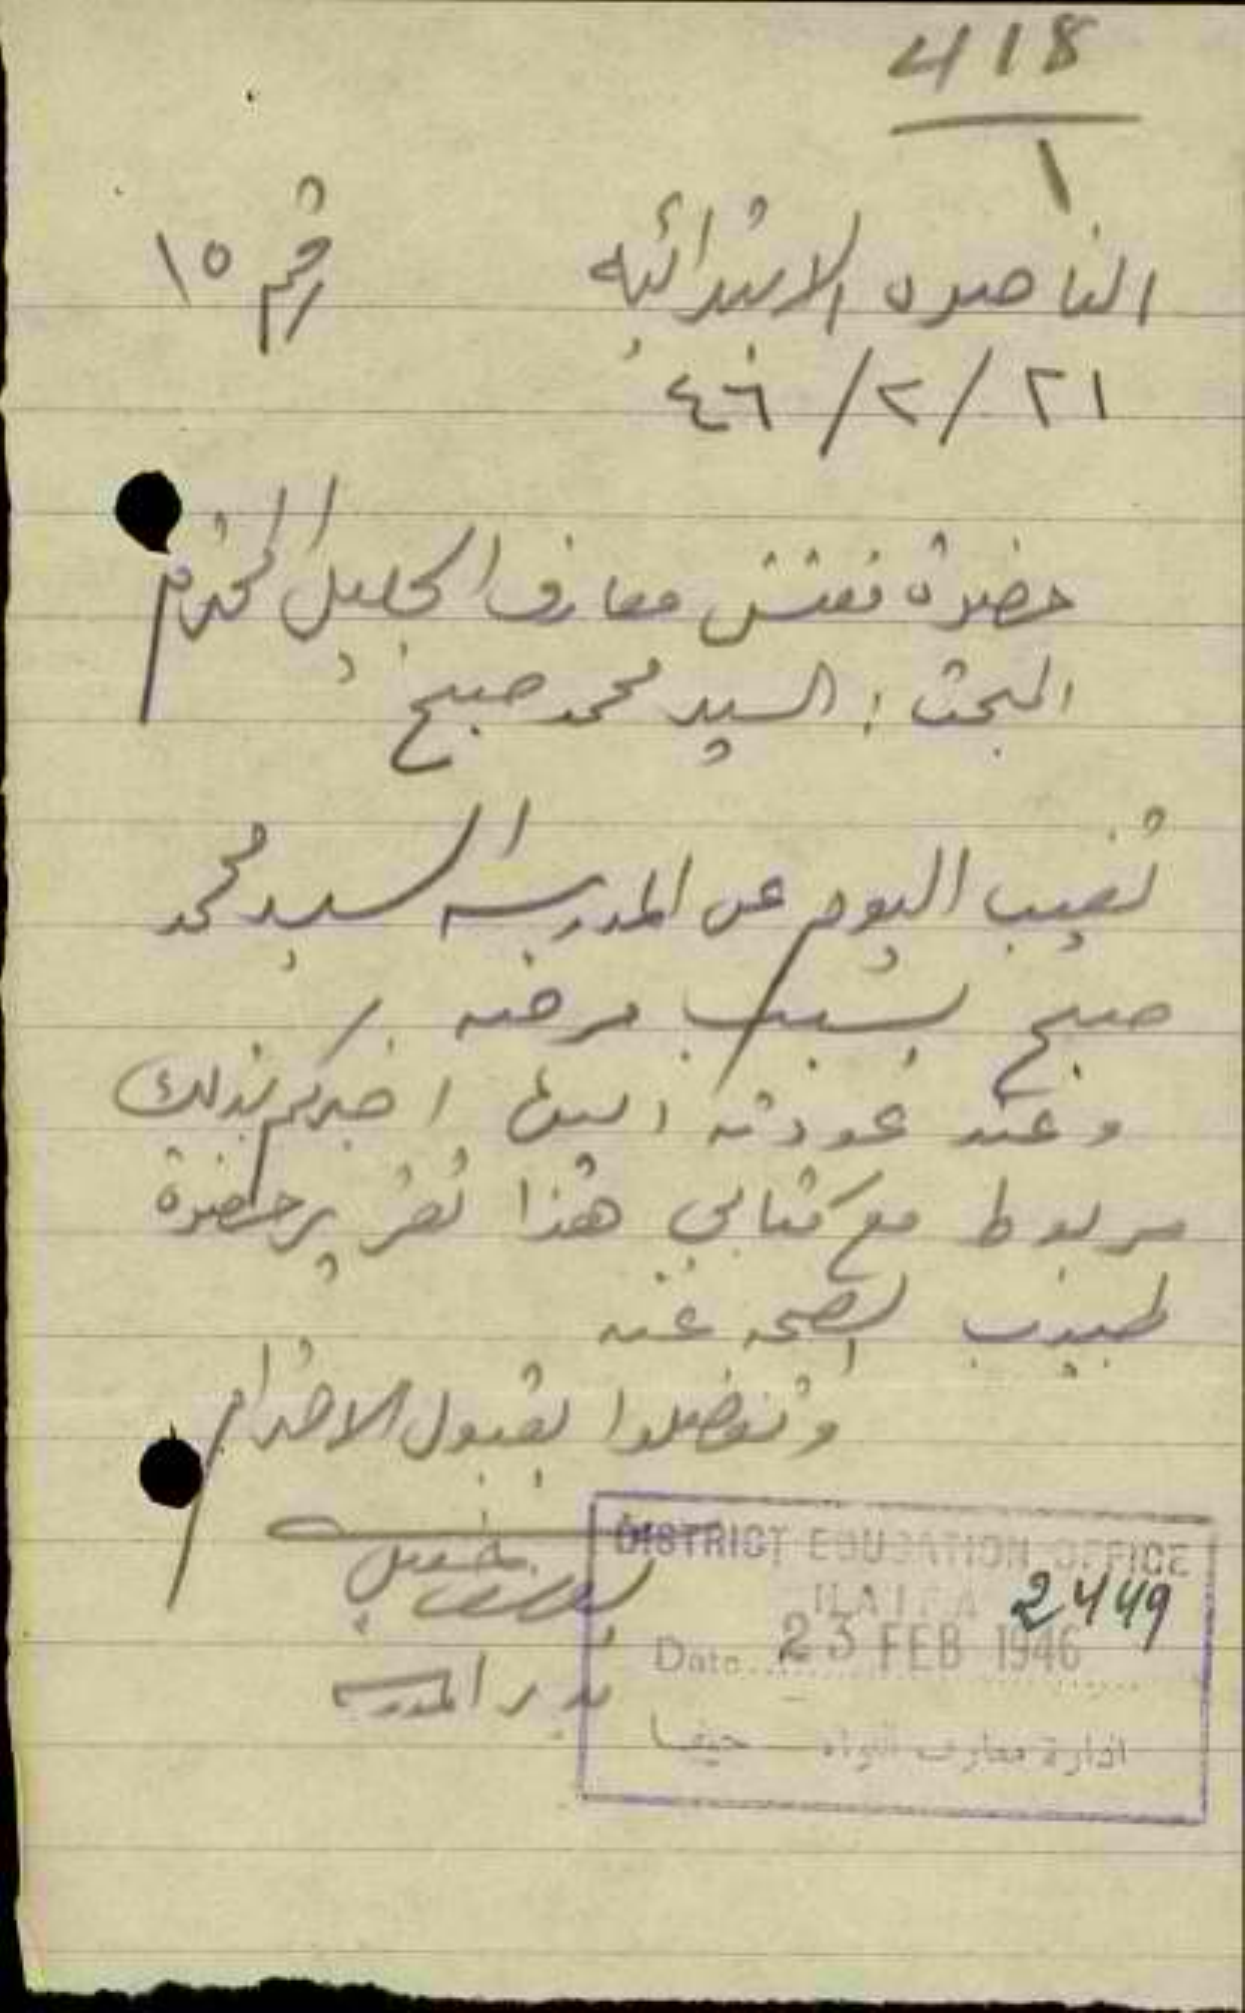 418
١
الناصره الابتدائيه رقم ١٥
٢١/٢/٤٦
حضرة مفتش معارف الجليل المحترم
المبحث : السيد محمد صبح
تغيب اليوم عن المدرسه السيد محمد
صبح بسبب مرضه .
وعند عودته اليها اخبركم بذلك
مربوط مع كتابي هذا تقرير حضرة
طبيب الصحه عنه
وتفضلوا بقبول الاحترام
مدير المدرسه
DISTRICT EDUCATION OFFICE
HAIFA 2449
Date 23 FEB 1946
ادارة معارف اللواء حيفا